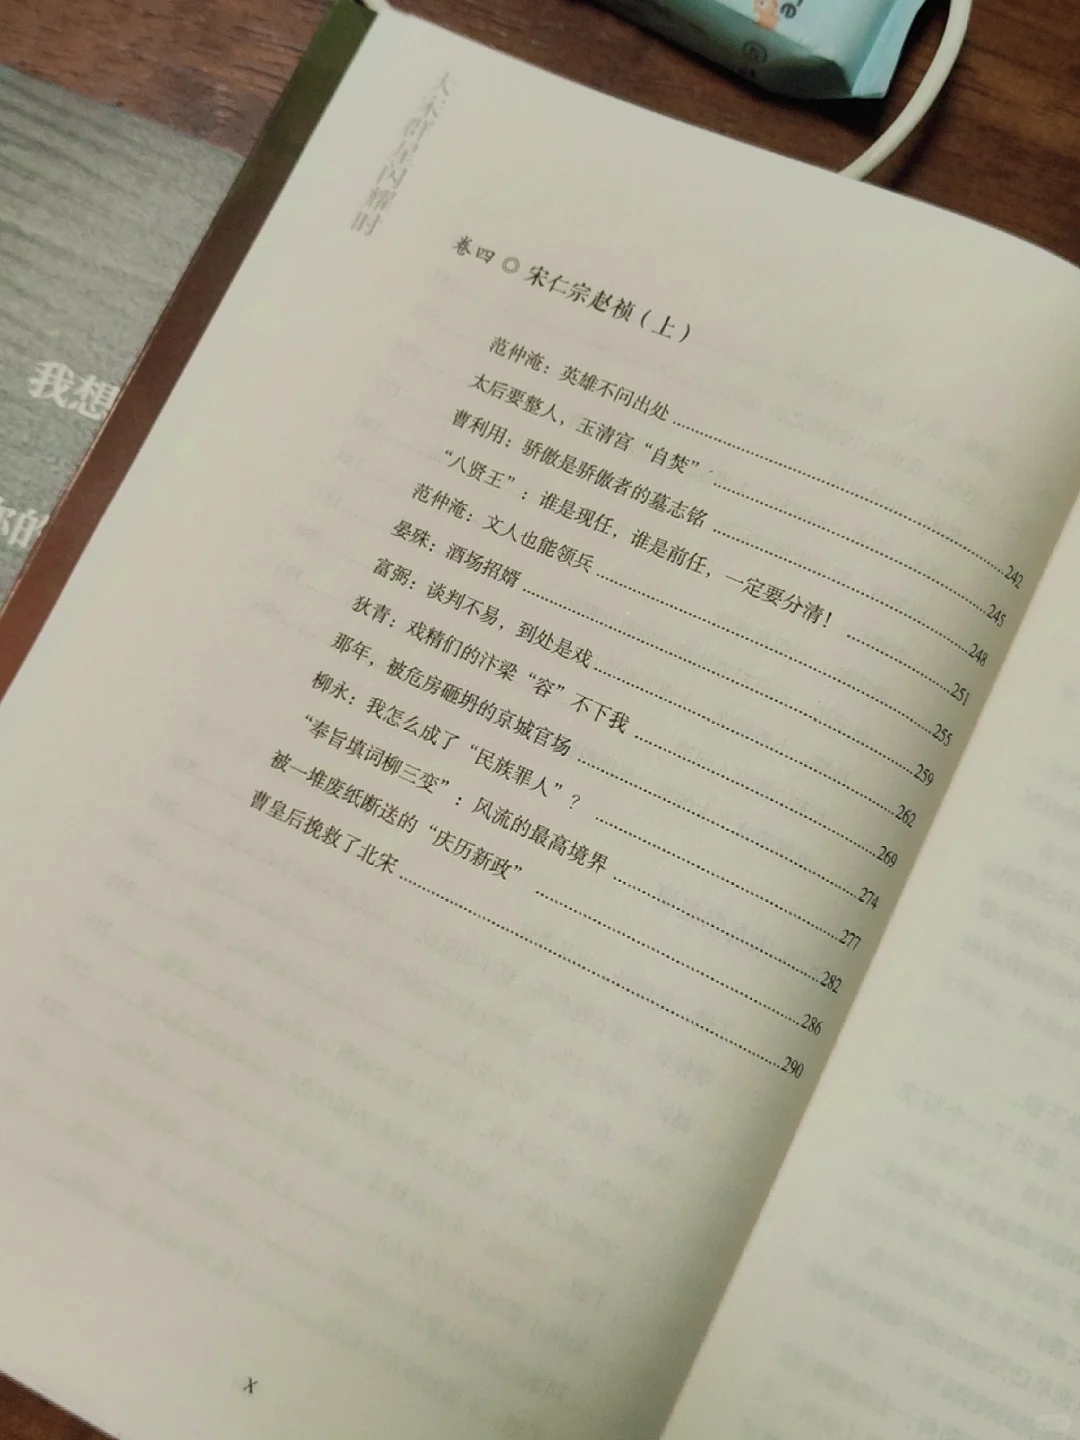 大宋群星闪耀时
卷四◎宋仁宗赵祯(上)
范仲淹：英雄不问出处……242
太后要整人，玉清宫“自焚”……245
曹利用：骄傲是骄傲者的墓志铭……248
“八贤王”：谁是现任，谁是前任，一定要分清！……251
范仲淹：文人也能领兵……255
晏殊：酒场招婿……259
富弼：谈判不易，到处是戏……262
狄青：戏精们的汴梁“容”不下我……269
那年，被危房砸坍的京城官场……274
柳永：我怎么成了“民族罪人”？……277
“奉旨填词柳三变”：风流的最高境界……282
被一堆废纸断送的“庆历新政”……286
曹皇后挽救了北宋……290
X
我想
你的